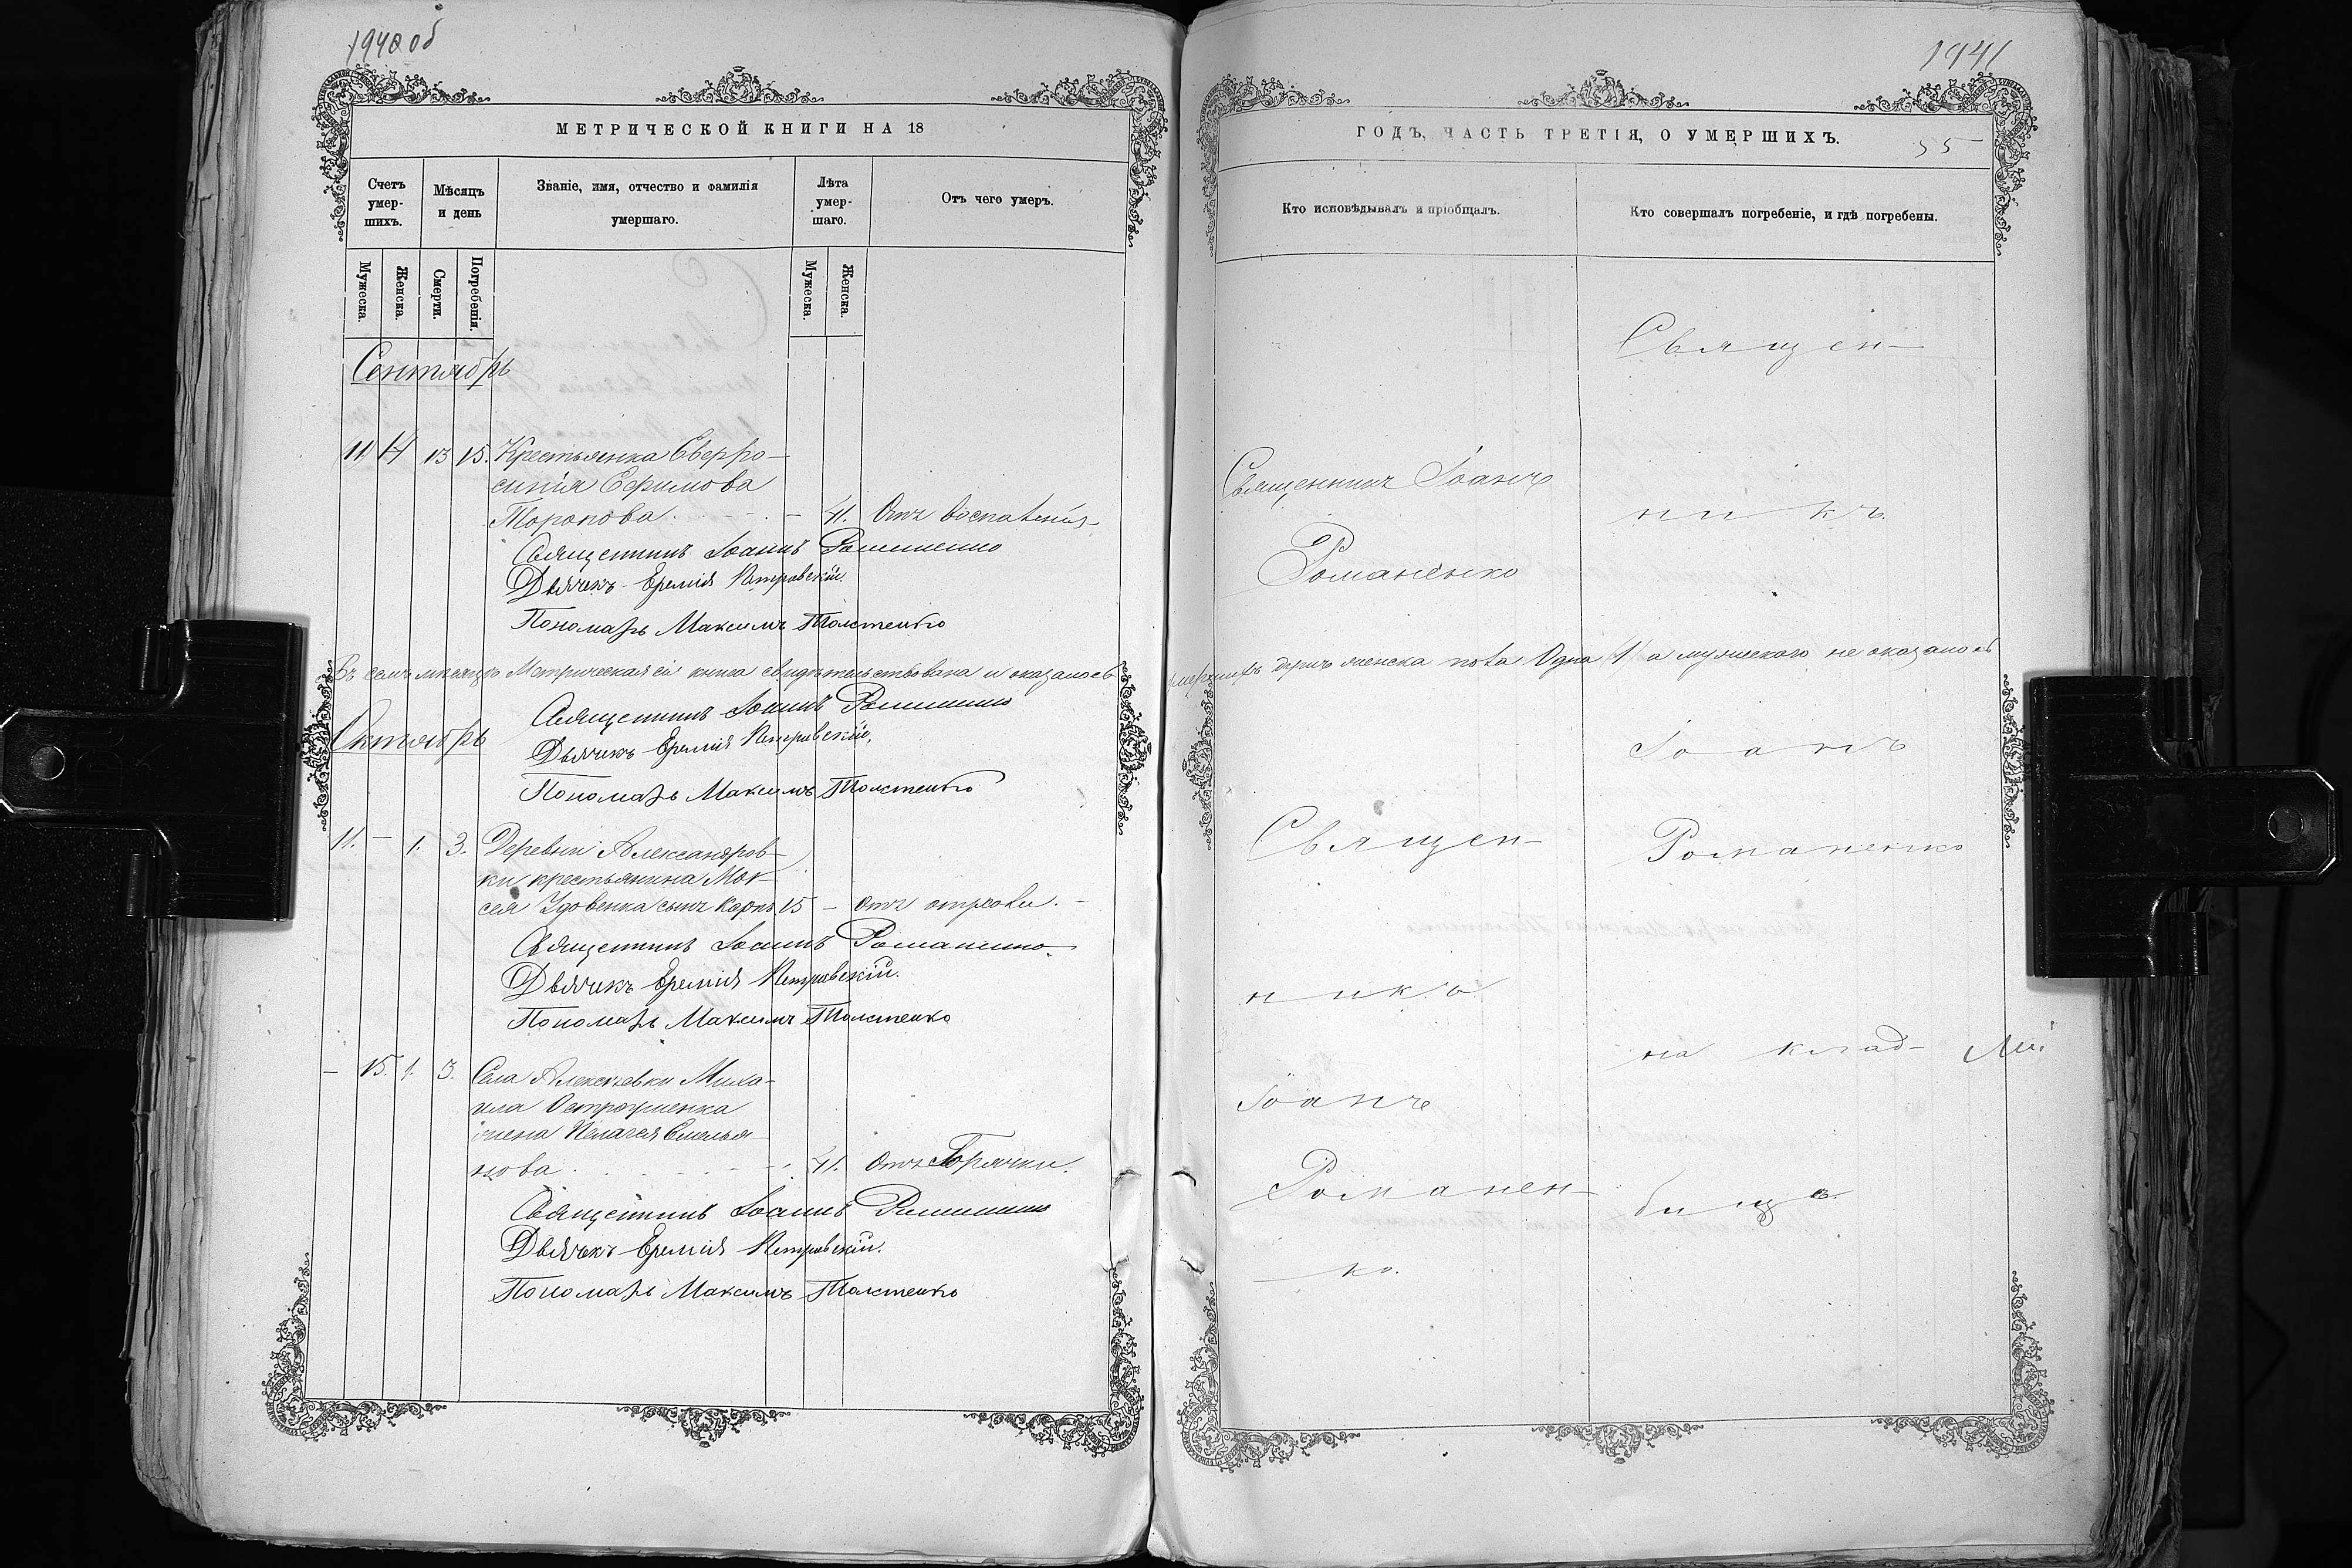 1940 об
МЕТРИЧЕСКОЙ КНИГИ НА 18
Счетъ умер-шихъ.
Мѣсяцъ и день
Званіе, имя, отчество и фамилія умершаго.
Лѣта умер-шаго.
Отъ чего умеръ.
Мужеска.
Женска.
Смерти.
Погребенія.
Мужеска.
Женска.
Сентябрь
11 14 13 15. Крестьянка Евфро-
синія Ефимова
Торопова - 41. Отъ воспаленія
Священникъ Іоаннъ Романенко
Дьячекъ Еремія Петровскій.
Пономарь Максимъ Толстенко
Въ семъ мѣсяцѣ Метрическая сія книга свидѣтельствована и оказалось
Священникъ Іоаннъ Романенко
Октябрь
Дьячекъ Еремія Петровскій.
Пономарь Максимъ Толстенко
11. - 1. 3. Деревни Александров-
ки крестьянина Мок-
сея Удовенка сынъ Карпъ 15 - отъ отравы.
Священникъ Іоаннъ Романенко
Дьячекъ Еремія Петровскій.
Пономарь Максимъ Толстенко
- 15. 1. 3. Села Алексѣевки Миха-
ила
жена Пелагея Емелья-
нова 41. Отъ Горячки.
Священникъ Іоаннъ Романенко
Дьячекъ Еремія Петровскій.
Пономарь Максимъ Толстенко
1941
ГОДЪ, ЧАСТЬ ТРЕТІЯ, О УМЕРШИХЪ.
55
Кто исповѣдывалъ и пріобщалъ.
Кто совершалъ погребеніе, и гдѣ погребены.
Священ-
Священникъ Іоаннъ
никъ
Романенко
умершихъ женска пола Одна 1 а мужескаго не оказалось
Іоаннъ
Священ-
Романенко
никъ
на клад-
Іоаннъ
Романен-
бищѣ.
ко.